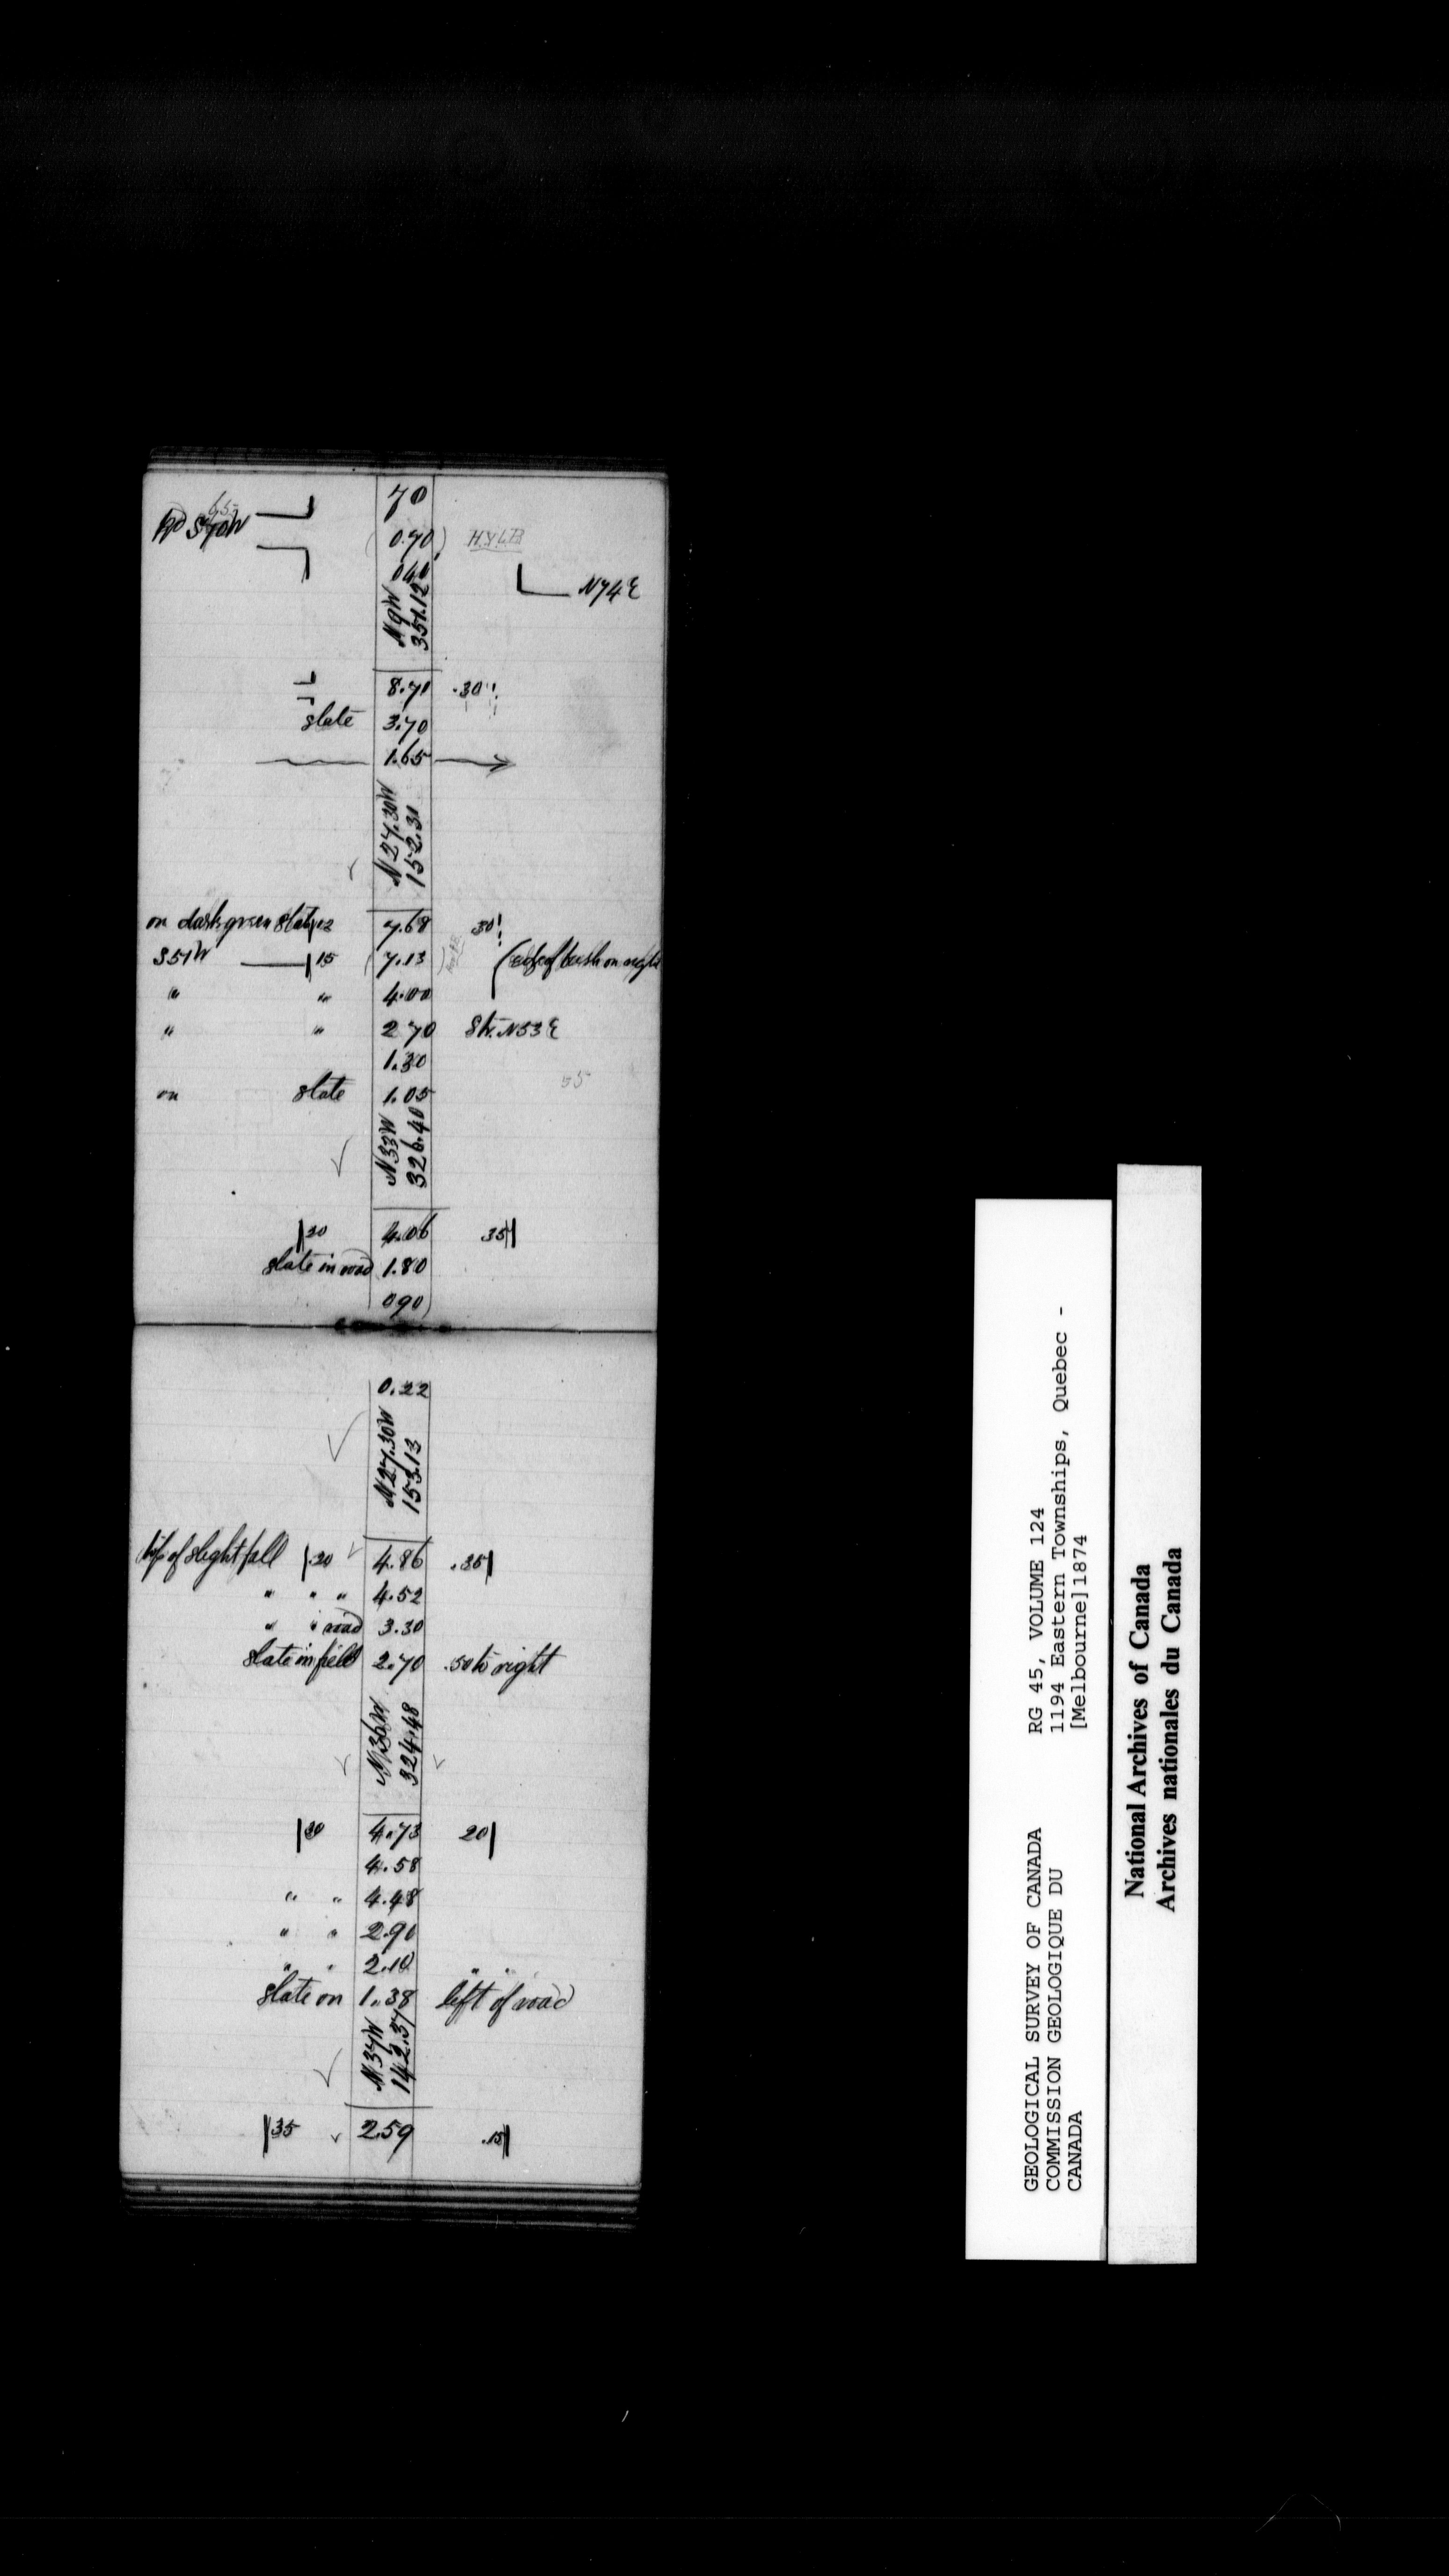 70
65
Rd S70W
0.70 H.Y.L.B
040
N74E
N9W
351.12
8.70 .30
slate 3.70
1.65
N27.30W
152.30
on dark green slate 12 7.68 30
S51W 15 7.13 (edge of bush on right
" " 4.00
" " 2 70 Str. N53E
1.30
55
on slate 1.05
N33W
326.40
30 4.06 35
slate in road 1.80
090
0.22
N27.30W
153.13
top of slight fall .20 4.86 .35
" " " 4.52
" " road 3.30
slate in field 2.70 .50 to right
N36W
324.48
30 4.73 20
4.58
" " 4.48
" " 2.90
" " 2.10 " "
slate on 1.38 left of road
N37W
142.37
35 2.59 .15
GEOLOGICAL SURVEY OF CANADA
COMMISSION GEOLOGIQUE DU
CANADA
RG 45, VOLUME 124
1194 Eastern Townships, Quebec -
[Melbourne]1874
National Archives of Canada
Archives nationales du Canada